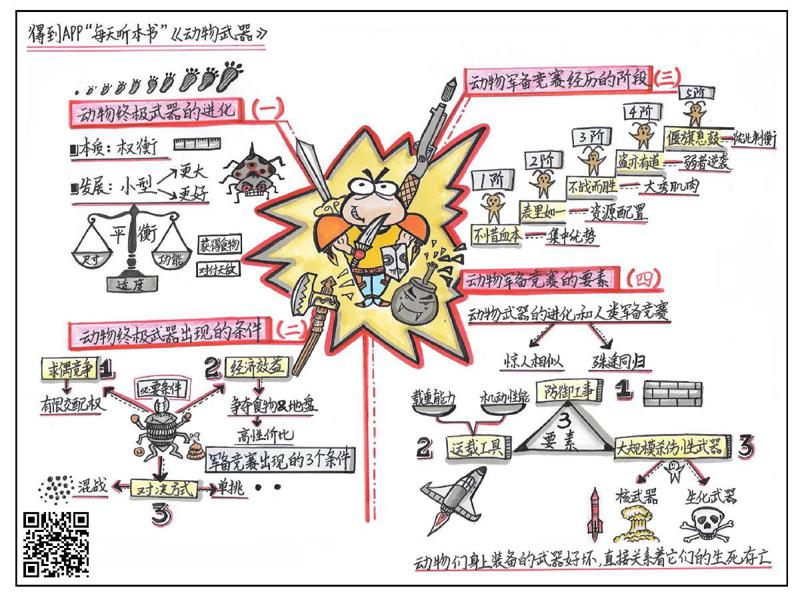 得到APP“每天听本书”《动物武器》
动物终极武器的进化 (一)
本质:权衡
发展:小型
更大
更好
平衡
尺寸
功能
适度
获得食物
对付天敌
动物终极武器出现的条件 (二)
求偶竞争 1
有限交配权
必要条件
2 经济效益
争夺食物&地盘
高性价比
军备竞赛出现的3个条件
混战
对决方式
单挑
3
动物军备竞赛经历的阶段 (三)
1阶
2阶
3阶
4阶
5阶
不惜血本
集中优势
表里如一
资源配置
不战而胜
大变肌肉
盗亦有道
弱者逆袭
偃旗息鼓
动物军备竞赛的要素 (四)
动物武器的进化和人类军备竞赛
惊人相似
殊途同归
载重能力
机动性能
防御工事 1
3
要素
2 运载工具
大规模杀伤性武器 3
核武器
生化武器
动物们身上装备的武器好坏,直接关系着它们的生死存亡